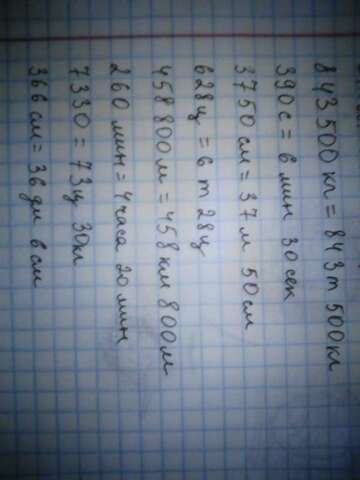 843500 кг = 843 т 500кг
390с = 6 мин 30 сек
3750 см = 37 м 50см
628ц = 6 т 28ц
458 800м = 458 км 800м
260 мин = 4часа 20 мин
7330 = 73ц 30кг
366 см = 36 дм 6 см